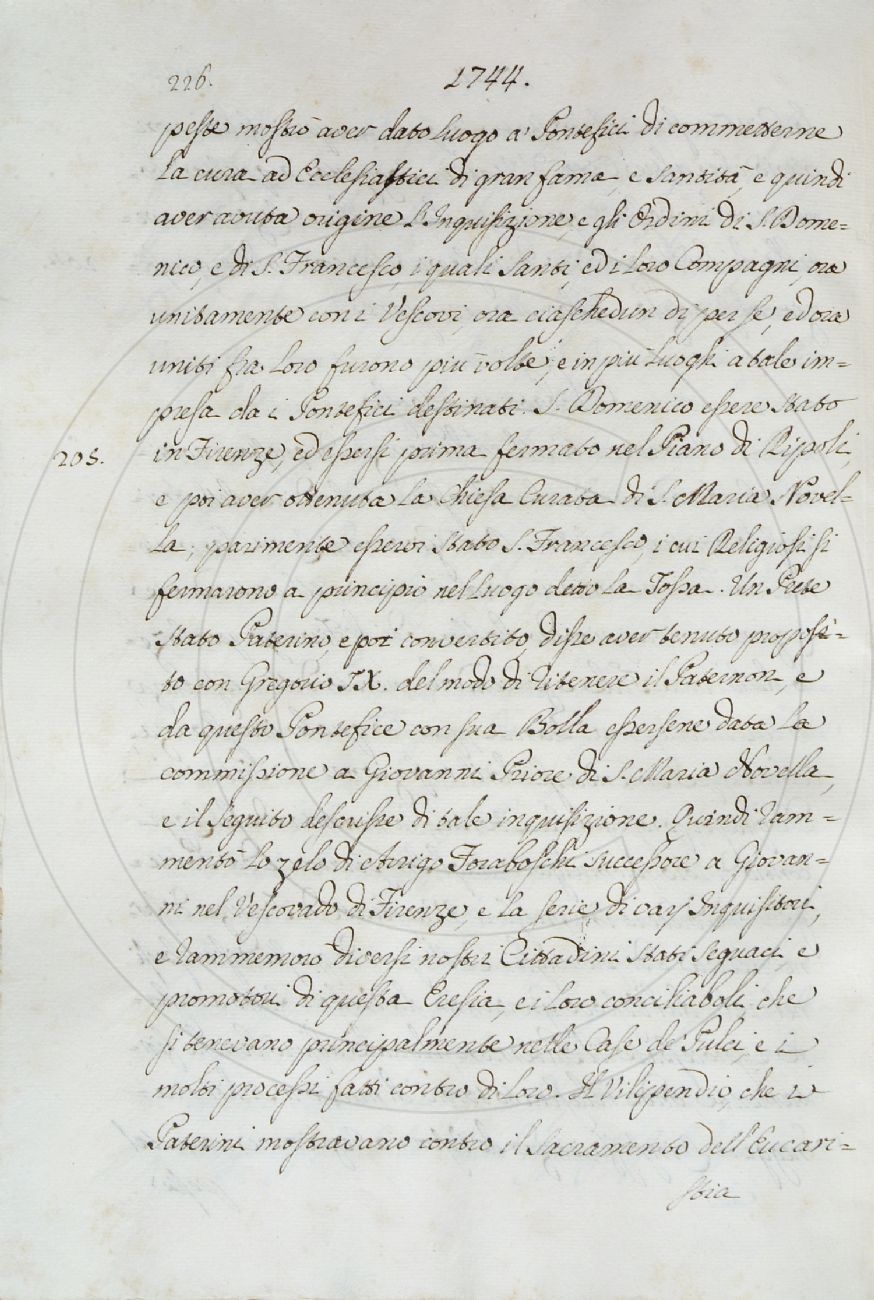 226.
1744.
peste mostrò aver dato luogo a' Pontefici di commetterne
la cura ad Ecclesiastici di gran fama, e santità, e quindi
aver avuta origine l'Inquisizione, e gli Ordini di S. Dome=
nico, e di S. Francesco, i quali Santi, ed i Loro Compagni, ora
unitamente con i Vescovi ora ciaschedun di per se, ed ora
uniti fra Loro furono più volte, e in più luoghi a tale im=
presa da i Pontefici destinati. S. Domenico essere stato
205.
in Firenze, ed essersi prima fermato nel Piano di Ripoli,
e poi aver ottenuta la Chiesa Curata di S. Maria Novel=
la; parimente esservi stato S. Francesco, i cui Religiosi si
fermarono a principio nel luogo detto la Fossa. Un Prete
stato Paterino, e poi convertito, disse aver tenuto proposi=
to con Gregorio IX. del modo di ritenere il Paternon, e
da questo Pontefice con sua Bolla essersene data la
commissione a Giovanni Priore di S. Maria Novella,
e il seguito descrisse di tale inquisizione. Quindi ram=
mentò lo zelo di Arrigo Foraboschi successore a Giovan=
ni nel Vescovado di Firenze, e la serie di varj Inquisitori,
e rammemorò diversi nostri Cittadini stati seguaci, e
promotori di questa Eresia, e i Loro conciliaboli, che
si tenevano principalmente nelle Case de' Pulci, e i
molti processi fatti contro di Loro. Il Vilipendio, che i
Paterini mostravano contro il Sacramento dell'Eucari=
stia